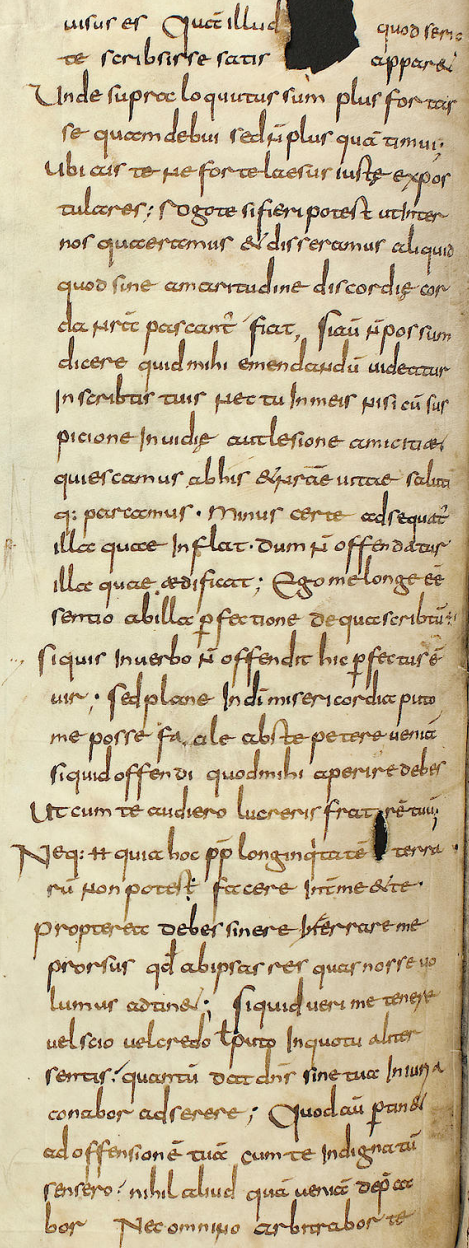 uisus es Quā illud quod serio
te scribsisse satis apparet
Unde supra loquutus sum plus fortas
se quam debui sed n̄ plus quā timui;
Ubi ais te ne forte laesus iuste expos
tulares; Rogote si fieri potest ut inter
nos quaeramus & disseramus aliquid
quod sine amaritudine discordię cor
da nr̄a pascant̄ fiat, Si aū n̄ possum
dicere quid mihi emendandū uideatur
In scribtis tuis nec tu In meis nisi cū sus
picione Inuidię aut lesione amicitiae
quiescamus ab his & nr̄ae uitae saluti
q: parcamus. Minus certe adsequat̄
illa quae Inflat. dum n̄ offendatur
illa quae ædificat; Ego me longe eē
sentio ab illa p̄fectione de qua scribtū:
si quis In uerbo n̄ offendit hic p̄fectus ē
uir; Sed plane In dī misericordia puto
me posse facile abs te petere uenia
si quid offendi quod mihi aperire debes
Ut cum te audiero lucreris fratrē tuū;
Neq: H quia hoc pp̄ longinq̇tatē terra
rū non potest facere Int̄ me & te.
propterea debes sinere Inerrare me
prorsus qđ ab ipsas res quas nosse uo
lumus adtinet; Si quid ueri me tenere
uel scio uel credo ł puto In quo tu aliter
sentis. quantū dat dn̄s sine tua Iniuria
conabor adserere; Quod aū p̄tin&
ad offensionē tuā cum te Indignatū
sensero. nihil aliud quā ueniā dep̄ca
bor Nec omnino arbitrabor te